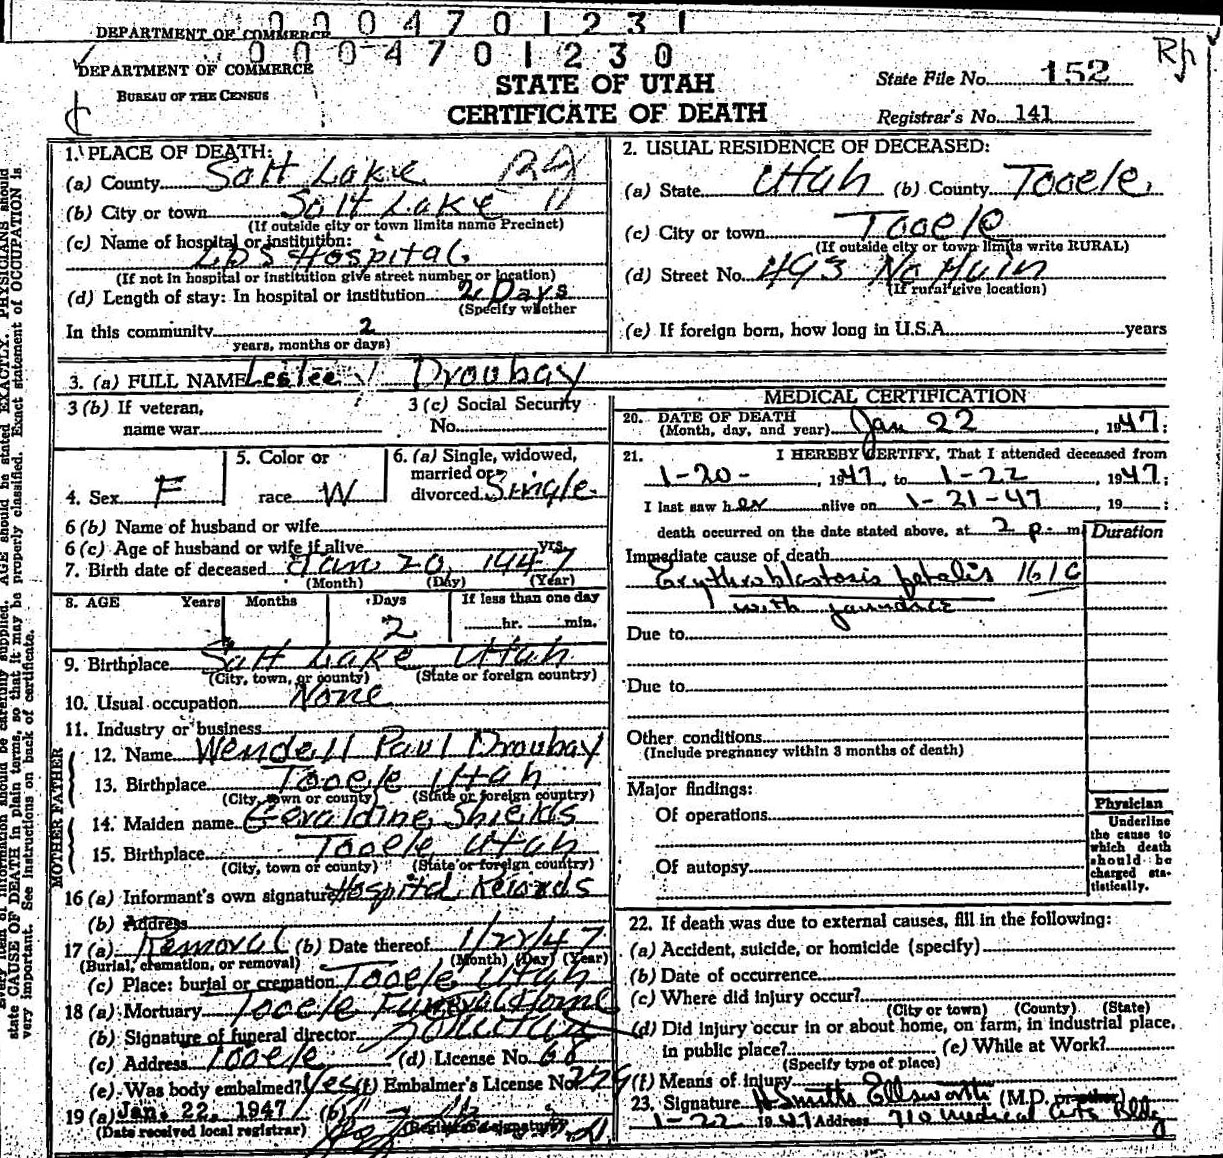 0004701231
DEPARTMENT OF COMMERCE
0004701230
DEPARTMENT OF COMMERCE
BUREAU OF THE CENSUS
STATE OF UTAH
CERTIFICATE OF DEATH
State File No. 152
Registrar's No. 141
1. PLACE OF DEATH:
(a) County Salt Lake
(b) City or town Salt Lake
(If outside city or town limits name Precinct)
(c) Name of hospital or institution:
LDS Hospital
(If not in hospital or institution give street number or location)
(d) Length of stay: In hospital or institution 2 Days
(Specify whether
In this community 2
years, months or days)
2. USUAL RESIDENCE OF DECEASED:
(a) State Utah (b) County Tooele
(c) City or town Tooele
(If outside city or town limits write RURAL)
(d) Street No. 493 No Main
(If rural give location)
(e) If foreign born, how long in U.S.A. years
3. (a) FULL NAME Leslee Droubay
3 (b) If veteran, name war
3 (c) Social Security No.
4. Sex F
5. Color or race W
6. (a) Single, widowed, married or divorced Single
6 (b) Name of husband or wife
6 (c) Age of husband or wife if alive yrs.
7. Birth date of deceased Jan 20, 1947
(Month) (Day) (Year)
8. AGE Years Months Days If less than one day
2 hr. min.
9. Birthplace Salt Lake Utah
(City, town, or county) (State or foreign country)
10. Usual occupation None
11. Industry or business
FATHER
12. Name Wendell Paul Droubay
13. Birthplace Tooele Utah
(City, town or county) (State or foreign country)
MOTHER
14. Maiden name Geraldine Shields
15. Birthplace Tooele Utah
(City, town or county) (State or foreign country)
16 (a) Informant's own signature Hospital Records
(b) Address
17 (a) Removal (b) Date thereof 1/22/47
(Burial, cremation, or removal) (Month) (Day) (Year)
(c) Place: burial or cremation Tooele Utah
18 (a) Mortuary Tooele Funeral Home
(b) Signature of funeral director
(c) Address Tooele (d) License No. 68
(e) Was body embalmed? Yes (f) Embalmer's License No. 229
19 (a) Jan. 22, 1947 (b)
(Date received local registrar) (Registrar's signature)
MEDICAL CERTIFICATION
20. DATE OF DEATH
(Month, day, and year) Jan 22, 1947;
21. I HEREBY CERTIFY, That I attended deceased from
1-20-, 1947, to 1-22, 1947;
I last saw her alive on 1-21-47, 19 ;
death occurred on the date stated above, at 2 p. m.
Duration
Immediate cause of death
Erythroblastosis fetalis 161C
with jaundice
Due to
Due to
Other conditions
(Include pregnancy within 3 months of death)
Major findings:
Of operations
Of autopsy
Physician
Underline
the cause to
which death
should be
charged sta-
tistically.
22. If death was due to external causes, fill in the following:
(a) Accident, suicide, or homicide (specify)
(b) Date of occurrence
(c) Where did injury occur?
(City or town) (County) (State)
(d) Did injury occur in or about home, on farm, in industrial place,
in public place? (e) While at Work?
(Specify type of place)
(f) Means of injury
23. Signature H Smith Ellsworth (M.D. or other)
1-22 1947 Address 710 Medical Arts Bldg
state CAUSE OF DEATH in plain terms, so that it may be properly classified. Exact statement of OCCUPATION is
very important. See instructions on back of certificate.